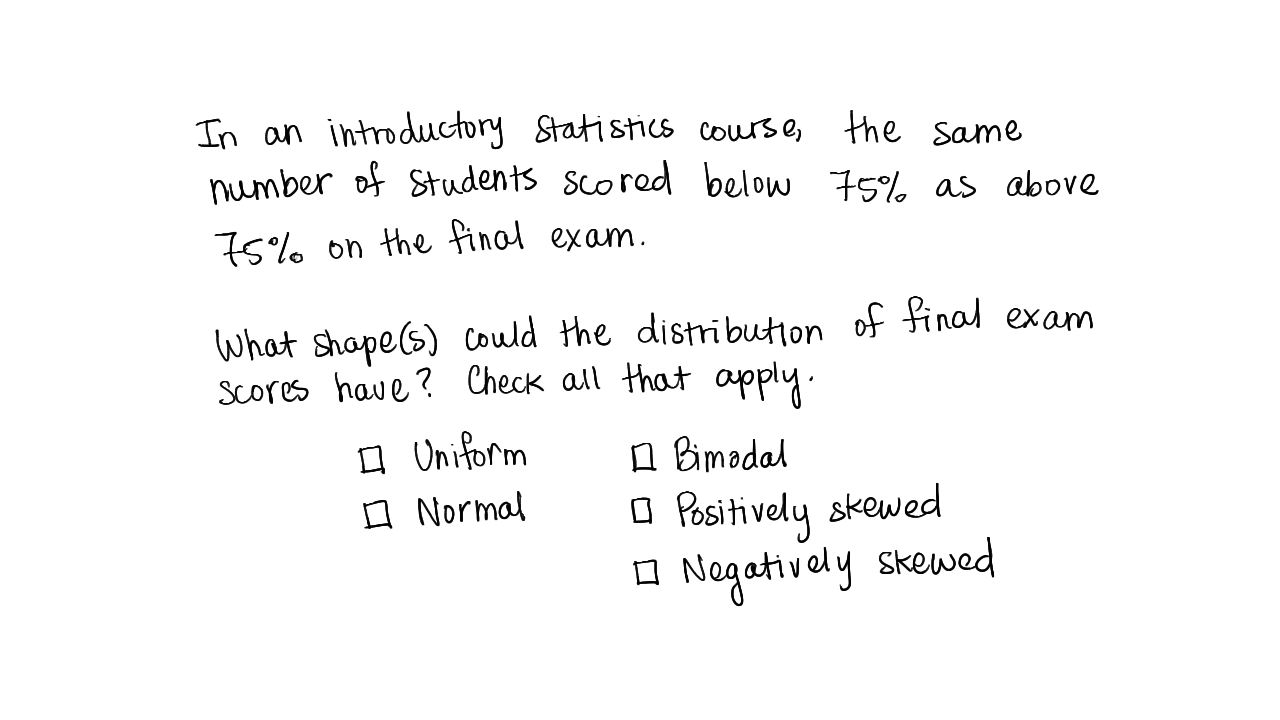 In an introductory statistics course, the same
number of students scored below 75% as above
75% on the final exam.
What shape(s) could the distribution of final exam
scores have? Check all that apply.
☐ Uniform ☐ Bimodal
☐ Normal ☐ Positively skewed
☐ Negatively skewed